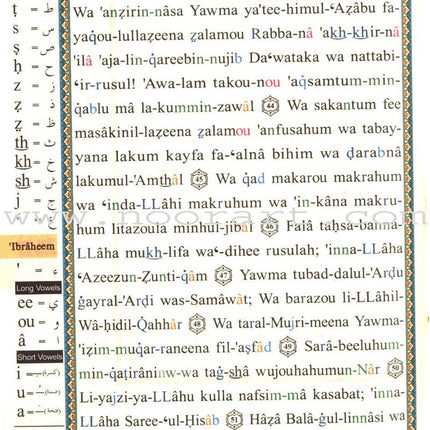 ṭ = ط
s = س
ṣ = ص
ḥ = ح
z = ز
ẓ = ظ
th = ث
kh = خ
sh = ش
'Ibrâheem
' = ء
Long Vowels
ee = ي
ou = و
â = ا
Short Vowels
i = ـِ (كسرة)
u = ـُ (ضمة)
a = ـَ (فتحة)
Wa 'anẓirin-nâsa Yawma ya'tee-himul-‘Aẓâbu fa-
yaqou-lullaẓeena ẓalamou Rabba-nâ 'akh-khir-nâ
'ilâ 'aja-lin-qareebin-nujib Da‘wataka wa nattabi-
‘ir-rusul! 'Awa-lam takou-nou 'aqsamtum-min-
qablu mâ la-kummin-zawâl 44 Wa sakantum fee
masâkinil-laẓeena ẓalamou 'anfusahum wa tabay-
yana lakum kayfa fa-‘alnâ bihim wa ḍarabnâ
lakumul-'Amthâl 45 Wa qad makarou makrahum
wa ‘inda-LLâhi makruhum wa 'in-kâna makru-
hum litazoula minhul-jibâl 46 Falâ taḥsa-banna-
LLâha mukh-lifa wa‘-dihee rusulah; 'inna-LLâha
‘Azeezun-Ẓunti-qâm 47 Yawma tubad-dalul-'Arḍu
ġayral-'Arḍi was-Samâwât; Wa barazou li-LLâhil-
Wâ-ḥidil-Qahhâr 48 Wa taral-Mujri-meena Yawma-
'iẓim-muqar-raneena fil-'aṣfâd 49 Sarâ-beeluhum-
min-qaṭirâninw-wa taġ-shâ wujouhahumun-Nâr 50
Li-yajzi-ya-LLâhu kulla nafsim-mâ kasabat; 'inna-
LLâha Saree-‘ul-Ḥisâb 51 Hâẓâ Balâ-ġul-linnâsi wa
www.noorart.com